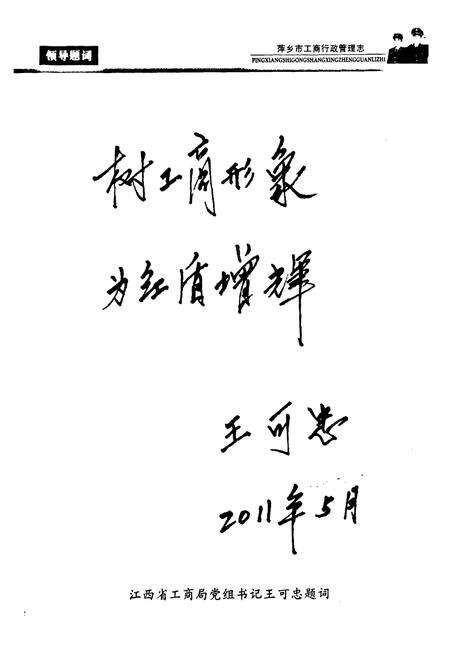 领导题词
萍乡市工商行政管理志
PINGXIANGSHIGONGSHANGXINGZHENGGUANLIZHI
树工商形象
为红盾增辉
王可忠
2011年5月
江西省工商局党组书记王可忠题词